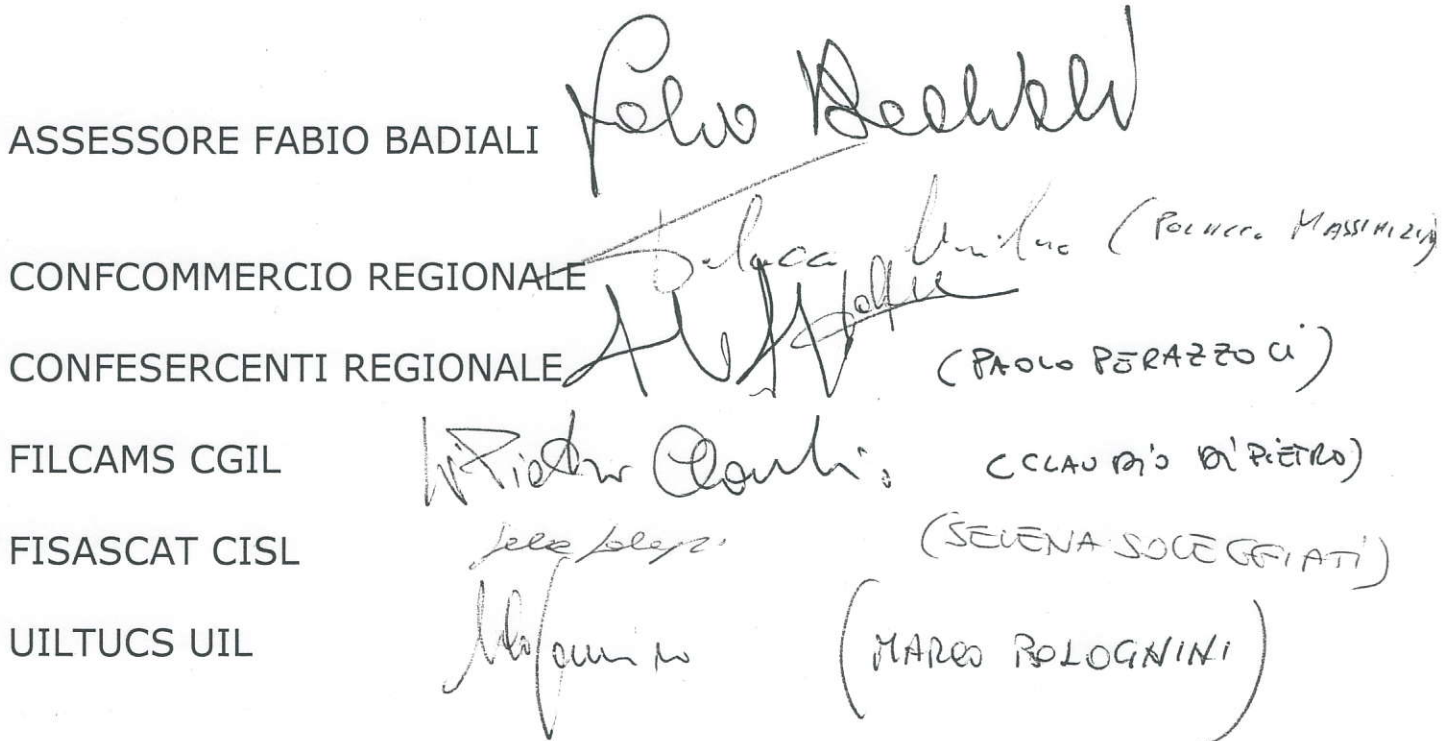 ASSESSORE FABIO BADIALI Fabio Badiali
CONFCOMMERCIO REGIONALE
CONFESERCENTI REGIONALE (PAOLO PERAZZOLI)
FILCAMS CGIL Di Pietro Claudio (CLAUDIO DI PIETRO)
FISASCAT CISL (SELENA SOLEGGIATI)
UILTUCS UIL (MARCO BOLOGNINI)